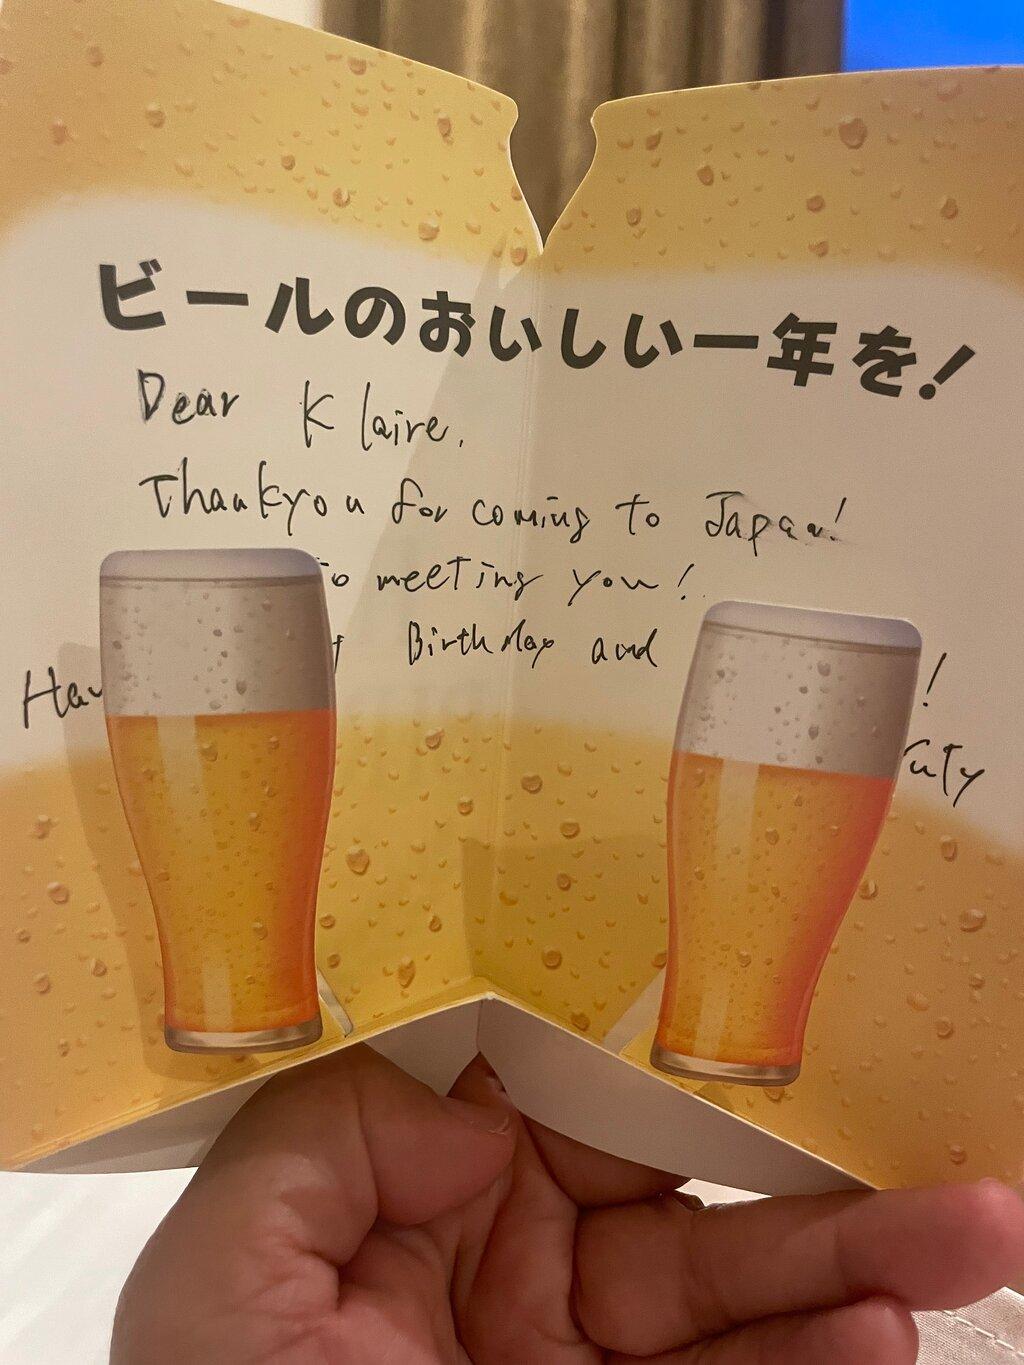 ビールのおいしい一年を!
Dear Klaire,
Thankyou for coming to Japan!
to meeting you!
Birthday and
!